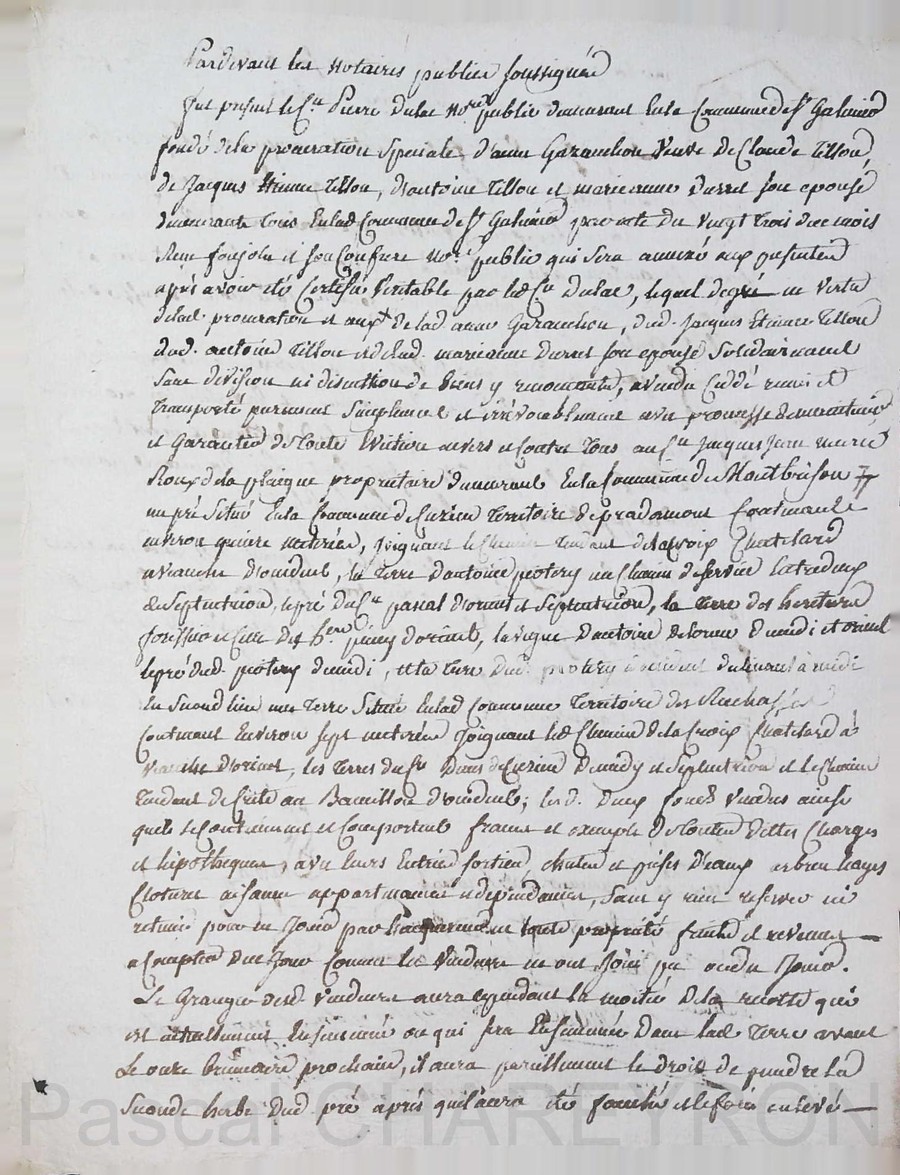 Pardevant les Notaires publics soussignés
fut present le Cn Pierre Dulac Nore public demeurant En la Commune de St Galmier
fondé de la procuration Speciale d'anne Garanchon Veuve de Claude Tillon
de Jacques Etienne Tillon, d'antoine Tillon et marieanne Durret son epouse
demeurants Tous En lad Commune de St Galmier par acte du Vingt Trois du mois
et son Confrere Nore public qui Sera annexé aux presentes
après avoir eté Certifié Veritable par led Cn Dulac, lequel de gré en Vertu
de lad procuration et aux de lad anne Garanchon, dud. Jacques Etienne Tillon
dud. antoine Tillon et de lad. marieanne Durret son epouse Solidairement
Sans division ni discution de biens y renonçants, a vendu Cédé remis et
Transporté purement Simplement et irrévocablement avec promesse de maintenir
et Garantir de toute Eviction envers et Contre Tous au Cn Jacques Jean marie
Roux de la plaigne proprietaire demeurant En la Commune de Montbrison
un pré Situé En la Commune de Curieu Territoire de pradamont Contenant
environ quinze metérées, Joignant le Chemin Tendant de la Croix Chatelard
a d'occident, la Terre d'antoine un Chemin de Service Entredeux
de Septentrion, le pré du Cn pascal d'orient et Septentrion, la Terre des heritiers
d'orient, la Vigne d'antoine de midi et orient
le pré dud. de midi, et la Terre dud. à midi
En Second lieu une Terre Située En lad Commune Territoire des
Contenant Environ Sept metérées Joignant led Chemin de la Croix Chatelard à
d'orient, les Terres du Cn de Curieu de midy et Septentrion et le Chemin
Tendant de au d'occident; les d. deux fonds Vendus ainsi
quils Se Contiennent et Comportent francs et exempts de toutes dettes Charges
et hipotheques, avec leurs Entrées sorties, chutes et prises d'eaux arbres hayes
Cloture aisance appartenances et dependances, Sans y rien reserver ni
retenir pour en Jouir par l'acquereur en toute proprieté fruits et revenus
a Compter de ce Jour Comme les Vendeurs en ont Joui pu ou du Jouir.
Le Granger desd. Vendeurs aura cependant la moitié de la recolte qui
est actuellement Ensemencée ou qui Sera Ensemencée dans lad Terre avant
Le onze brumaire prochain, il aura pareillement le droit de prendre la
Seconde herbe dud pré après quil aura eté fauché et le foin enlevé
Pascal CHAREYRON